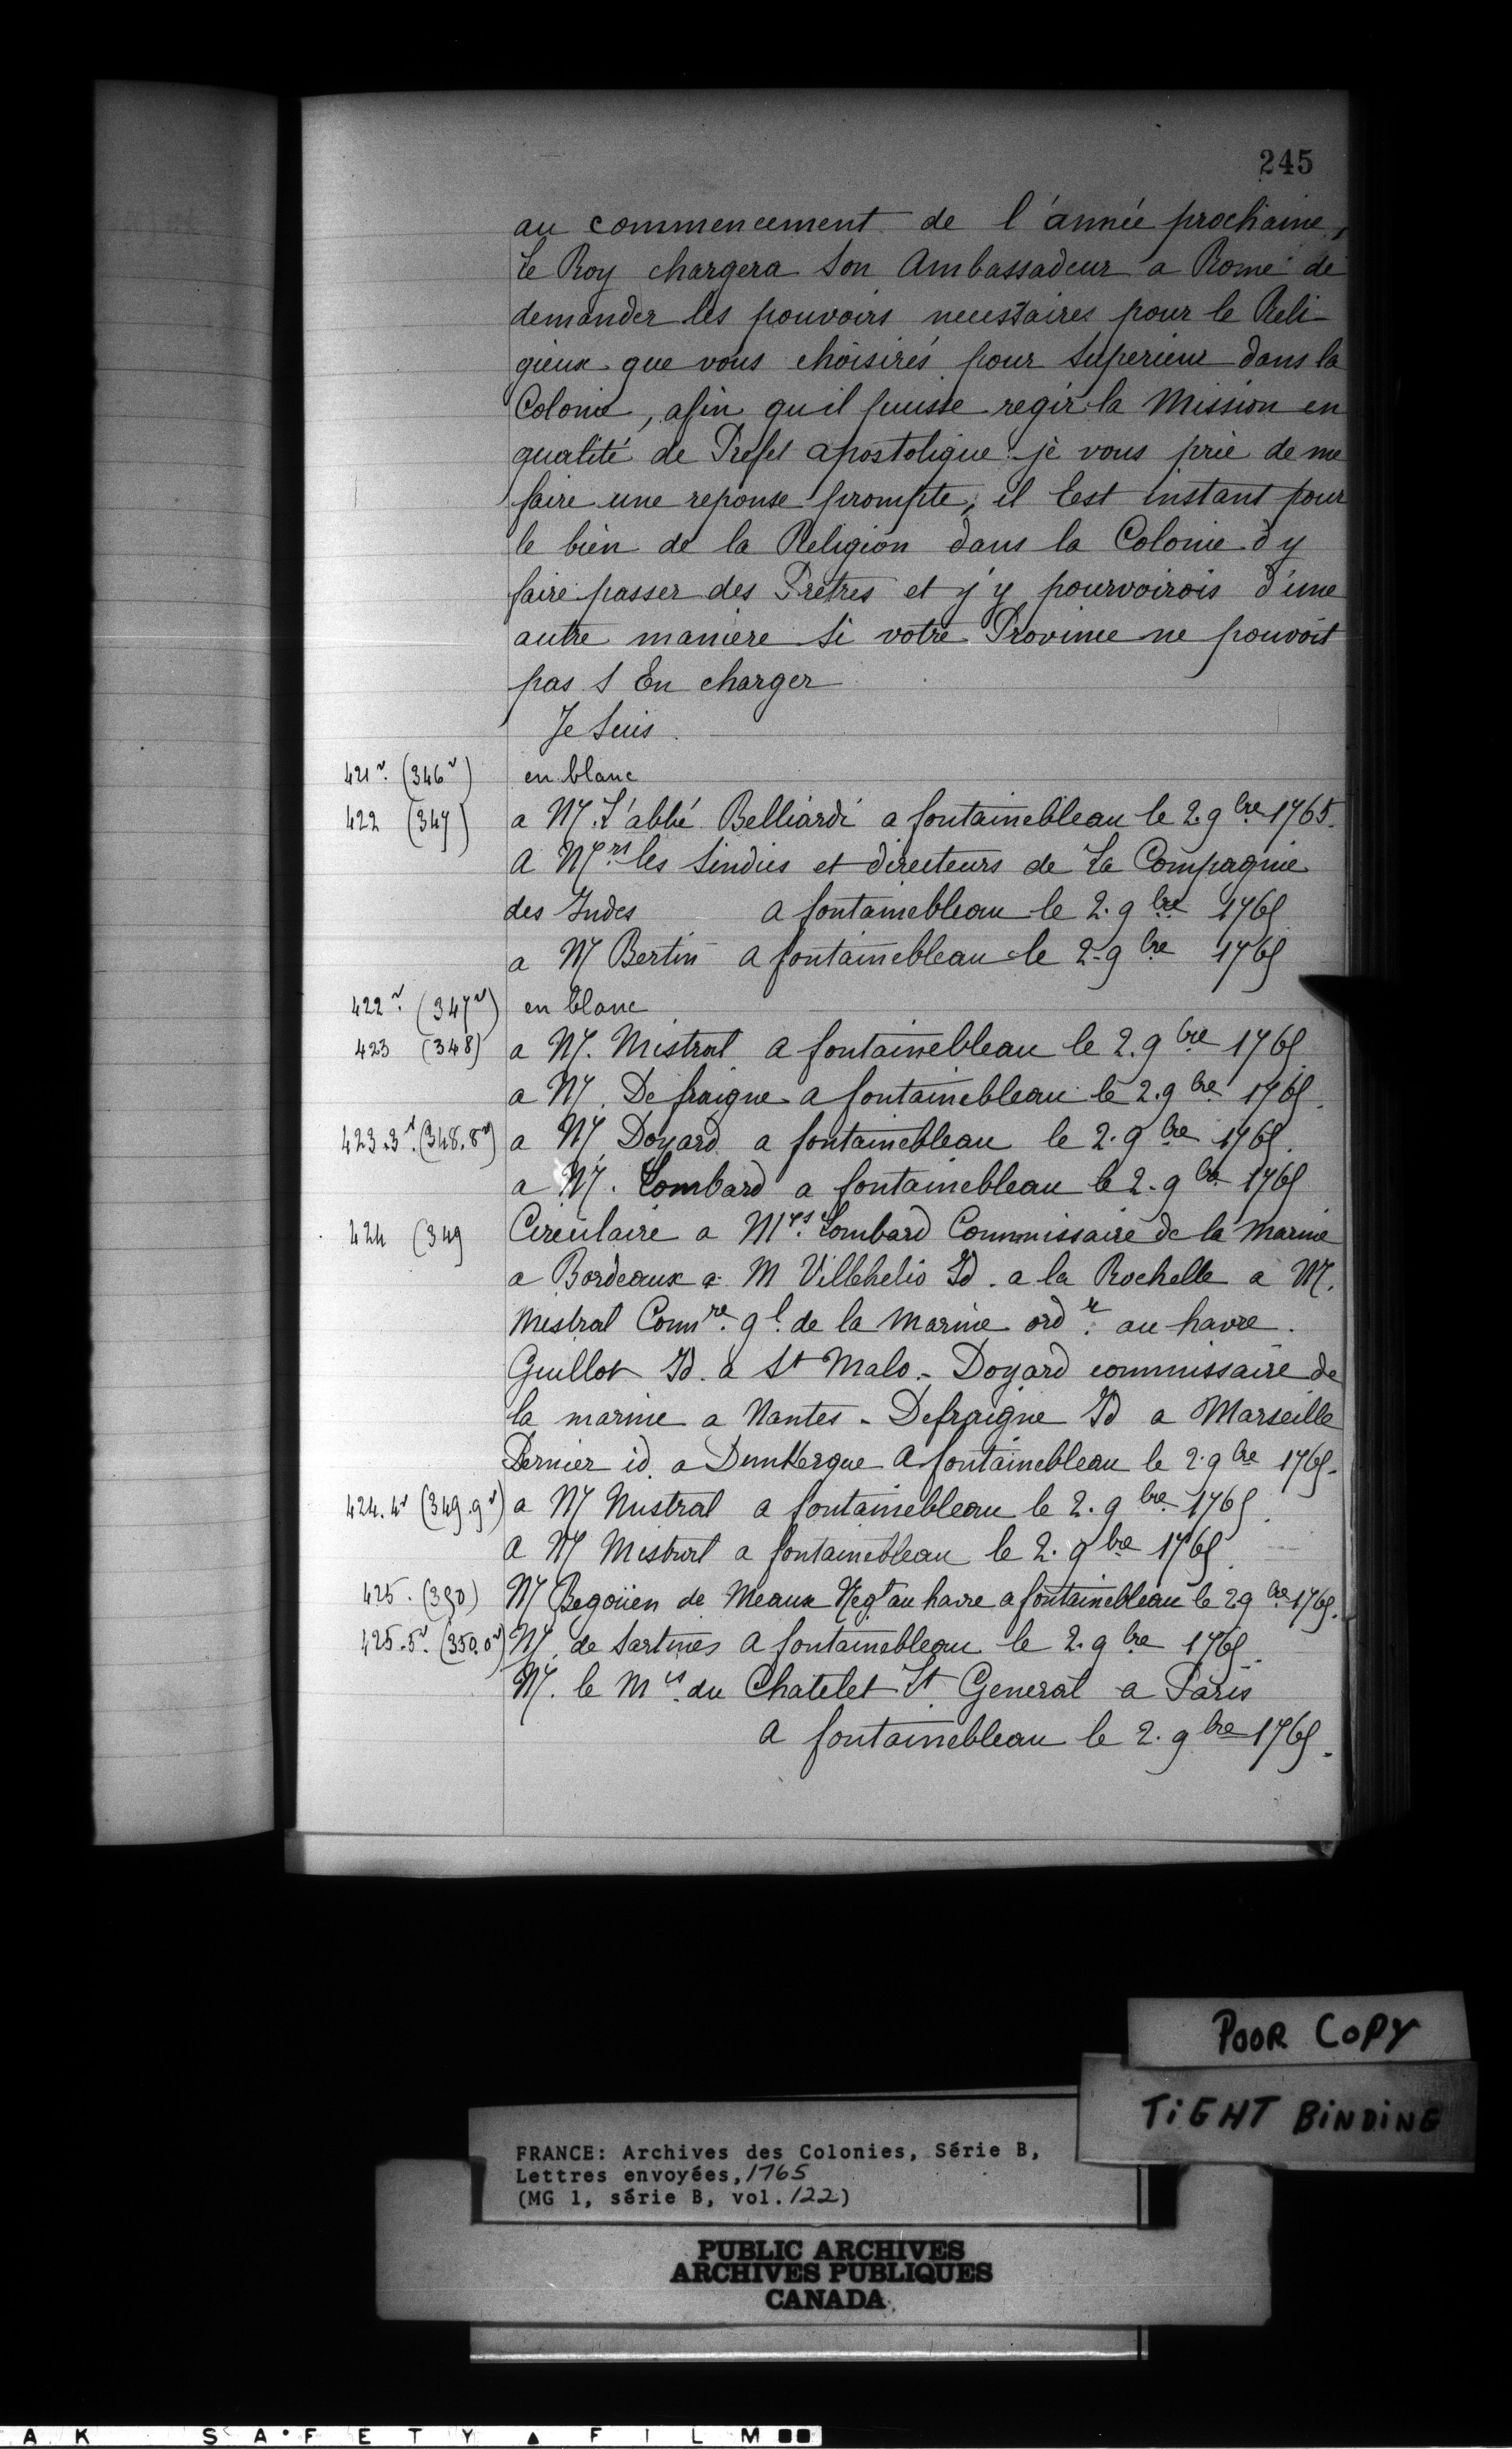 245
au commencement de l'année prochaine,
le Roy chargera son Ambassadeur a Rome de
demander les pouvoirs necessaires pour le Reli-
gieux que vous choisirés pour superieur dans la
Colonie, afin qu il puisse regir la Mission en
qualité de Prefet apostolique je vous prie de me
faire une reponse prompte, il Est instant pour
le bien de la Religion dans la Colonie d y
faire passer des Prêtres et j'y pourvoirois d'une
autre maniere si votre Province ne pouvoit
pas s En charger
Je suis.
421v. (346v) en blanc
422 (347) a M. L'abbé Belliardi a fontainebleau le 2. 9bre 1765.
a Mrs les sindics et directeurs de La Compagnie
des Indes a fontainebleau le 2. 9bre 1765
a M Bertin a fontainebleau le 2. 9bre 1765
422v. (347v) en blanc
423 (348) a M. Mistral a fontainebleau le 2. 9bre 1765
a M. Defraigne a fontainebleau le 2. 9bre 1765.
423.3v. (348.8v) a M. Doyard a fontainebleau le 2. 9bre 1765.
a M. Lombard a fontainebleau le 2. 9bre 1765
424 (349 Circulaire a Mrs. Lombard Commissaire de la Marine
a Bordeaux a M Villehelio Id. a la Rochelle a M.
Mestral Commre. gl. de la Marine ordre. au havre.
Guillot Id. a St Malo. - Doyard commissaire de
la marine a Nantes - Defraigne Id a Marseille
Dernier id. a Dunkerque a fontainebleau le 2. 9bre 1765.
424.4v (349.9v) a M Mistral a fontainebleau le 2. 9bre 1765.
a M Mistral a fontainebleau le 2. 9bre 1765.
425. (350) M Begoüen de Meaux Negt au havre a fontainebleau le 2 9bre 1765.
425.5v. (350.0v) M. de Sartines a fontainebleau le 2. 9bre 1765.
M. le Mis. du Chatelet Lt General a Paris
a fontainebleau le 2. 9bre 1765.
POOR COPY
TiGHT BiNDiNG
FRANCE: Archives des Colonies, Série B,
Lettres envoyées, 1765
(MG 1, série B, vol. 122)
PUBLIC ARCHIVES
ARCHIVES PUBLIQUES
CANADA
AK SAFETY FILM